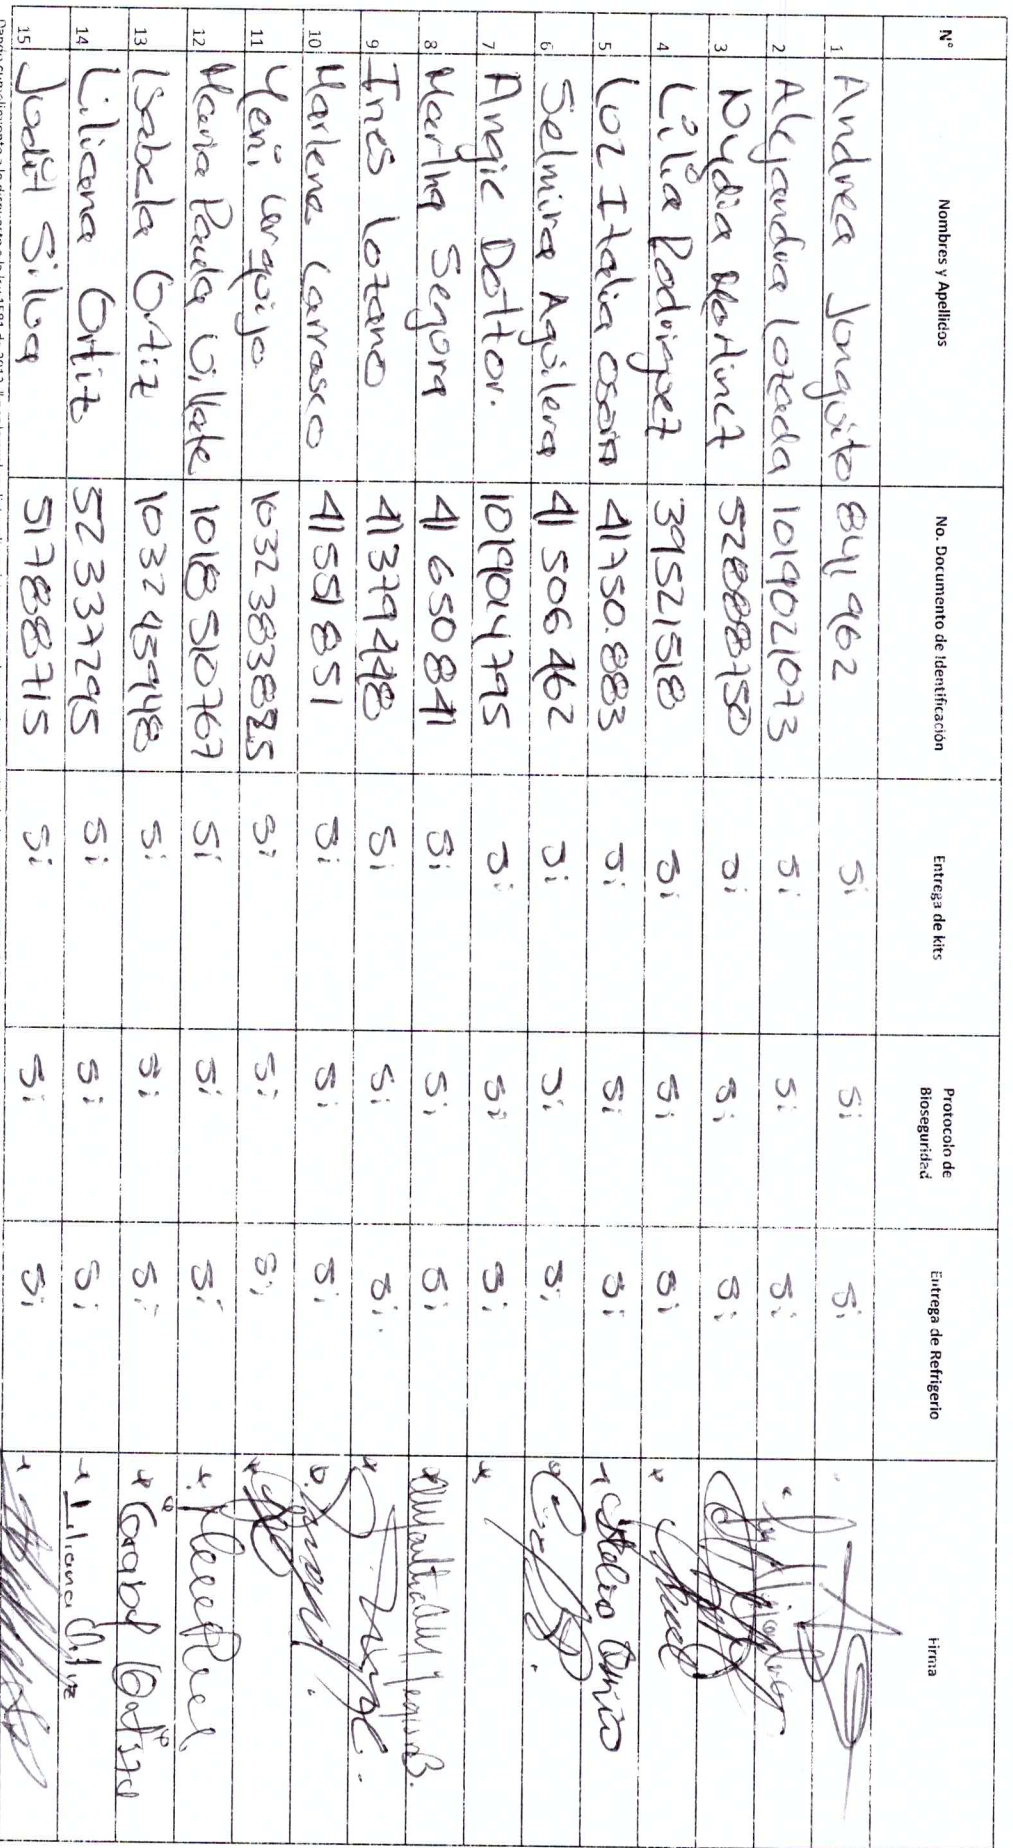 N° Nombres y Apellidos No. Documento de Identificación Entrega de kits Protocolo de Bioseguridad Entrega de Refrigerio Firma
1 Andrea Jonquito 841 962 Si Si Si
2 Alejandra Lozada 1019021073 Si Si Si
3 Nydia Martinez 52888750 Si Si Si
4 Lilia Rodriguez 39521518 Si Si Si
5 Luz Italia Osorio 41750.883 Si Si Si
6 Selmira Aguilera 41 506 462 Si Si Si
7 Angie Dottor. 1019014795 Si Si Si
8 Martha Segura 41 650 841 Si Si Si
9 Ines Lozano 41379448 Si Si Si
10 Marlene Carrasco 41551851 Si Si Si
11 Yeni Urquijo 1032383885 Si Si Si
12 Maria Paula Villate 1018510767 Si Si Si
13 Isabela Ortiz 103245948 Si Si Si
14 Liliana Ortiz 52337295 Si Si Si Liliana Ortiz
15 Judit Silva 51788715 Si Si Si